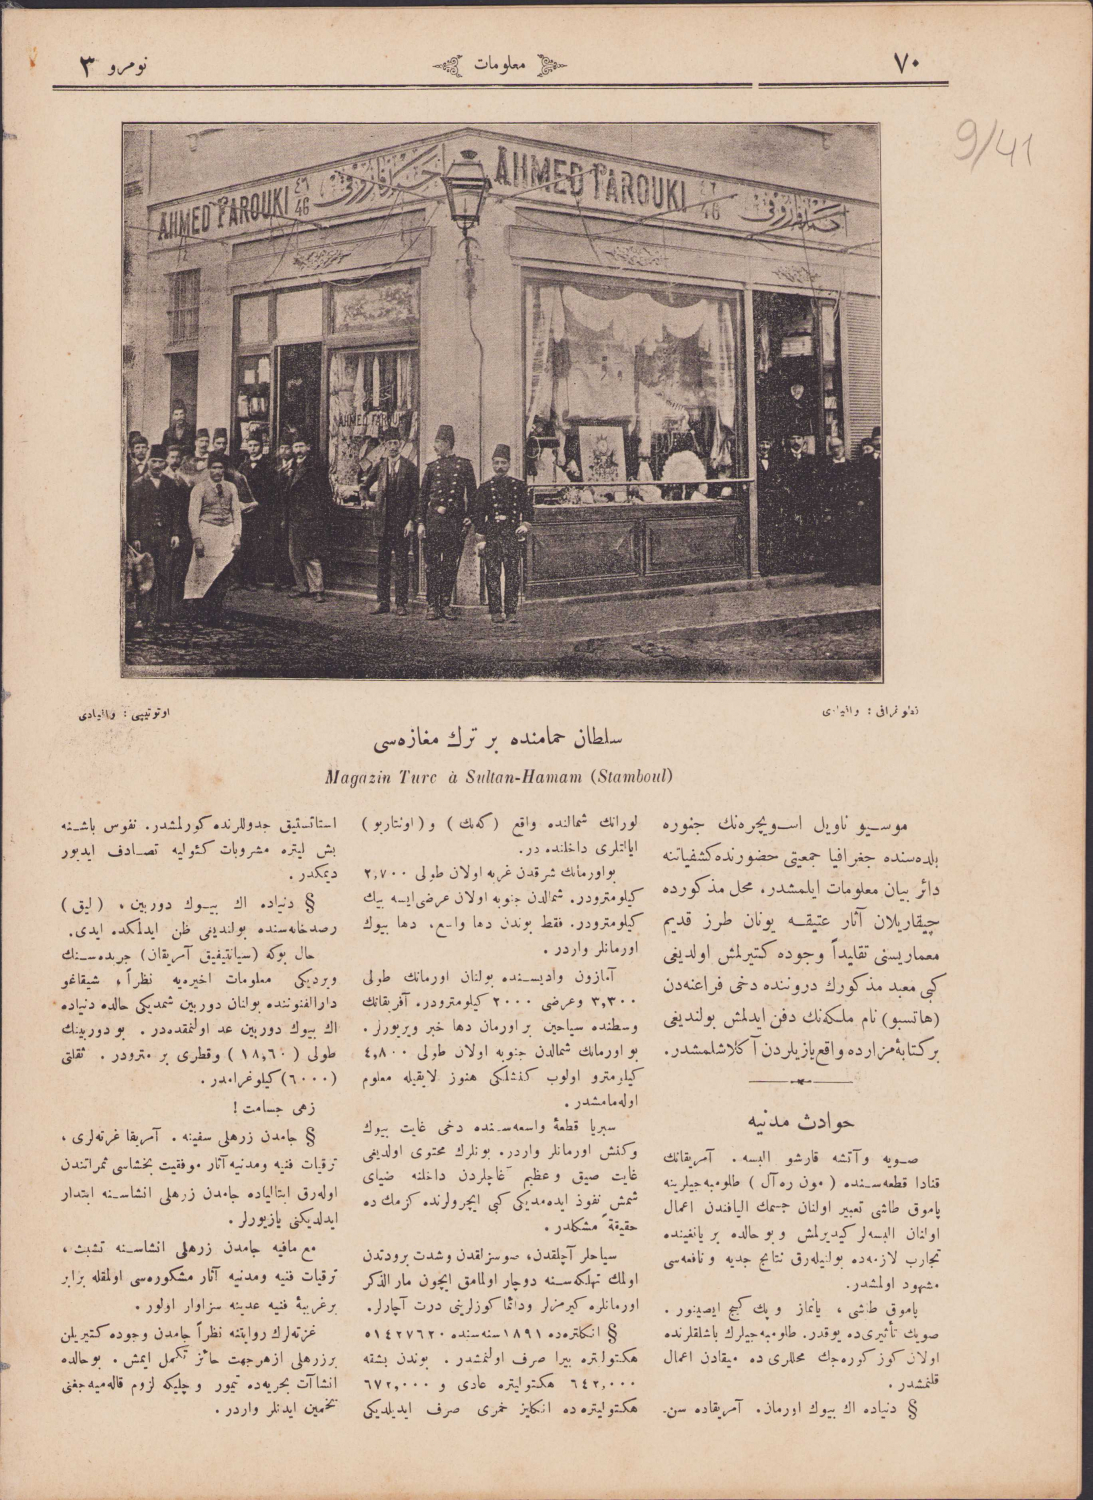 ٧٠
معلومات
نومرو ٣
9/41
AHMED FAROUKI ٤٦ 46 احمد فاروقى
AHMED FAROUKI ٤٦ 46 احمد فاروقى
AHMED FAROUKI
فطوغرافى : وافيادى
اوتوتيپى : وافيادى
سلطان حمامنده بر ترك مغازه‌سى
Magazin Turc à Sultan-Hamam (Stamboul)
موسيو ناويل اسويچره‌نك جنوره
بلده‌سنده جغرافيا جمعيتى حضورنده كشفياتنه
دائر بيان معلومات ايلمشدر. محل مذكورده
چيقاريلان آثار عتيقه يونان طرز قديم
معماريسنى تقليداً وجوده كتيرلمش اولديغى
كبى معبد مذكورك دروننده دخى فراعنه‌دن
(هاتسبو) نام ملكه‌نك دفن ايدلمش بولنديغى
بر كتابهٔ مزارده واقع يازيلردن آكلاشلمشدر.
حوادث مدنيه
صويه وآتشه قارشو البسه. آمريقانك
قنادا قطعه‌سنده (مون ره‌آل) طلومبه‌جيلرينه
پاموق طاشى تعبير اولنان جسمك اليافندن اعمال
اولنان البسه‌لر كيديرلمش وبو حالده بر يانغينده
تجارب لازمه‌ده بولنيله‌رق نتايج جديه و نافعه‌سى
مشهود اولمشدر.
پاموق طاشى ، يانماز و پك كيج ايصينور.
صويك تأثيرى‌ده يوقدر. طلومبه‌جيلرك باشلقلرنده
اولان كوز كوره‌جك محللرى ده ميقادن اعمال
قلنمشدر.
§ دنياده اك بيوك اورمان. آمريقاده سن.
لورانك شمالنده واقع (كه‌بك) و (اونتاريو)
ايالتلرى داخلنده در.
بو اورمانك شرقدن غربه اولان طولى ٢,٧٠٠
كيلومترودر. شمالدن جنوبه اولان عرضى ايسه بيك
كيلومترودر. فقط بوندن دها واسع، دها بيوك
اورمانلر واردر.
آمازون واديسنده بولنان اورمانك طولى
٣,٣٠٠ وعرضى ٢٠٠٠ كيلومترودر. آفريقانك
وسطنده سياحين بر اورمان دها خبر ويريورلر.
بو اورمانك شمالدن جنوبه اولان طولى ٤,٨٠٠
كيلومترو اولوب كنشلكى هنوز لايقيله معلوم
اوله‌مامشدر.
سبريا قطعهٔ واسعه‌سنده دخى غايت بيوك
وكنش اورمانلر واردر. بونلرك محتوى اولديغى
غايت صيق وعظيم آغاچلردن داخلنه ضياى
شمس نفوذ ايده‌مديكى كبى ايچرولرنده كزمك ده
حقيقةً مشكلدر.
سياحلر آچلقدن، صوسزلقدن وشدت برودتدن
اولمك تهلكه‌سنه دوچار اولمامق ايچون مار الذكر
اورمانلره كيرمزلر ودائما كوزلرينى درت آچارلر.
§ انكلتره‌ده ١٨٩١ سنه‌سنده ٥١٤٢٧٦٢٠
هكتوليتره بيرا صرف اولنمشدر. بوندن بشقه
٦٤٢,٠٠٠ هكتوليتره عادى و ٦٧٢,٠٠٠
هكتوليتره‌ده انكليز خمرى صرف ايديلديكى
استاتستيق جدوللرنده كورلمشدر. نفوس باشنه
بش ليتره مشروبات كئوليه تصادف ايديور
ديمكدر.
§ دنياده اك بيوك دوربين، (ليق)
رصدخانه‌سنده بولنديغى ظن ايدلمكده ايدى.
حال بوكه (سيانتيفيق آمريقان) جريده‌سنك
ويرديكى معلومات اخيره‌يه نظراً، شيقاغو
دارالفنوننده بولنان دوربين شمديكى حالده دنياده
اك بيوك دوربين عد اولنمقده‌در. بو دوربينك
طولى (١٨,٦٠) وقطرى بر مترودر. ثقلتى
(٦٠٠٠) كيلوغرامدر.
زهى جسامت!
§ جامدن زرهلى سفينه. آمريقا غزته‌لرى،
ترقيات فنيه ومدنيه آثار موفقيت بخشاسى ثمراتندن
اوله‌رق ايتالياده جامدن زرهلى انشاسنه ابتدار
ايدلديكنى يازيورلر.
مع مافيه جامدن زرهلى انشاسنه تشبث،
ترقيات فنيه ومدنيه آثار مشكوره‌سى اولمقله برابر
بر غريبهٔ فنيه عدينه سزاوار اولور.
غزته‌لرك روايتنه نظراً جامدن وجوده كتيريلن
بر زرهلى از هر جهت حائز تكمل ايمش. بو حالده
انشاآت بحريه‌ده تيمور و چليكه لزوم قالميه‌جغنى
تخمين ايدنلر واردر.